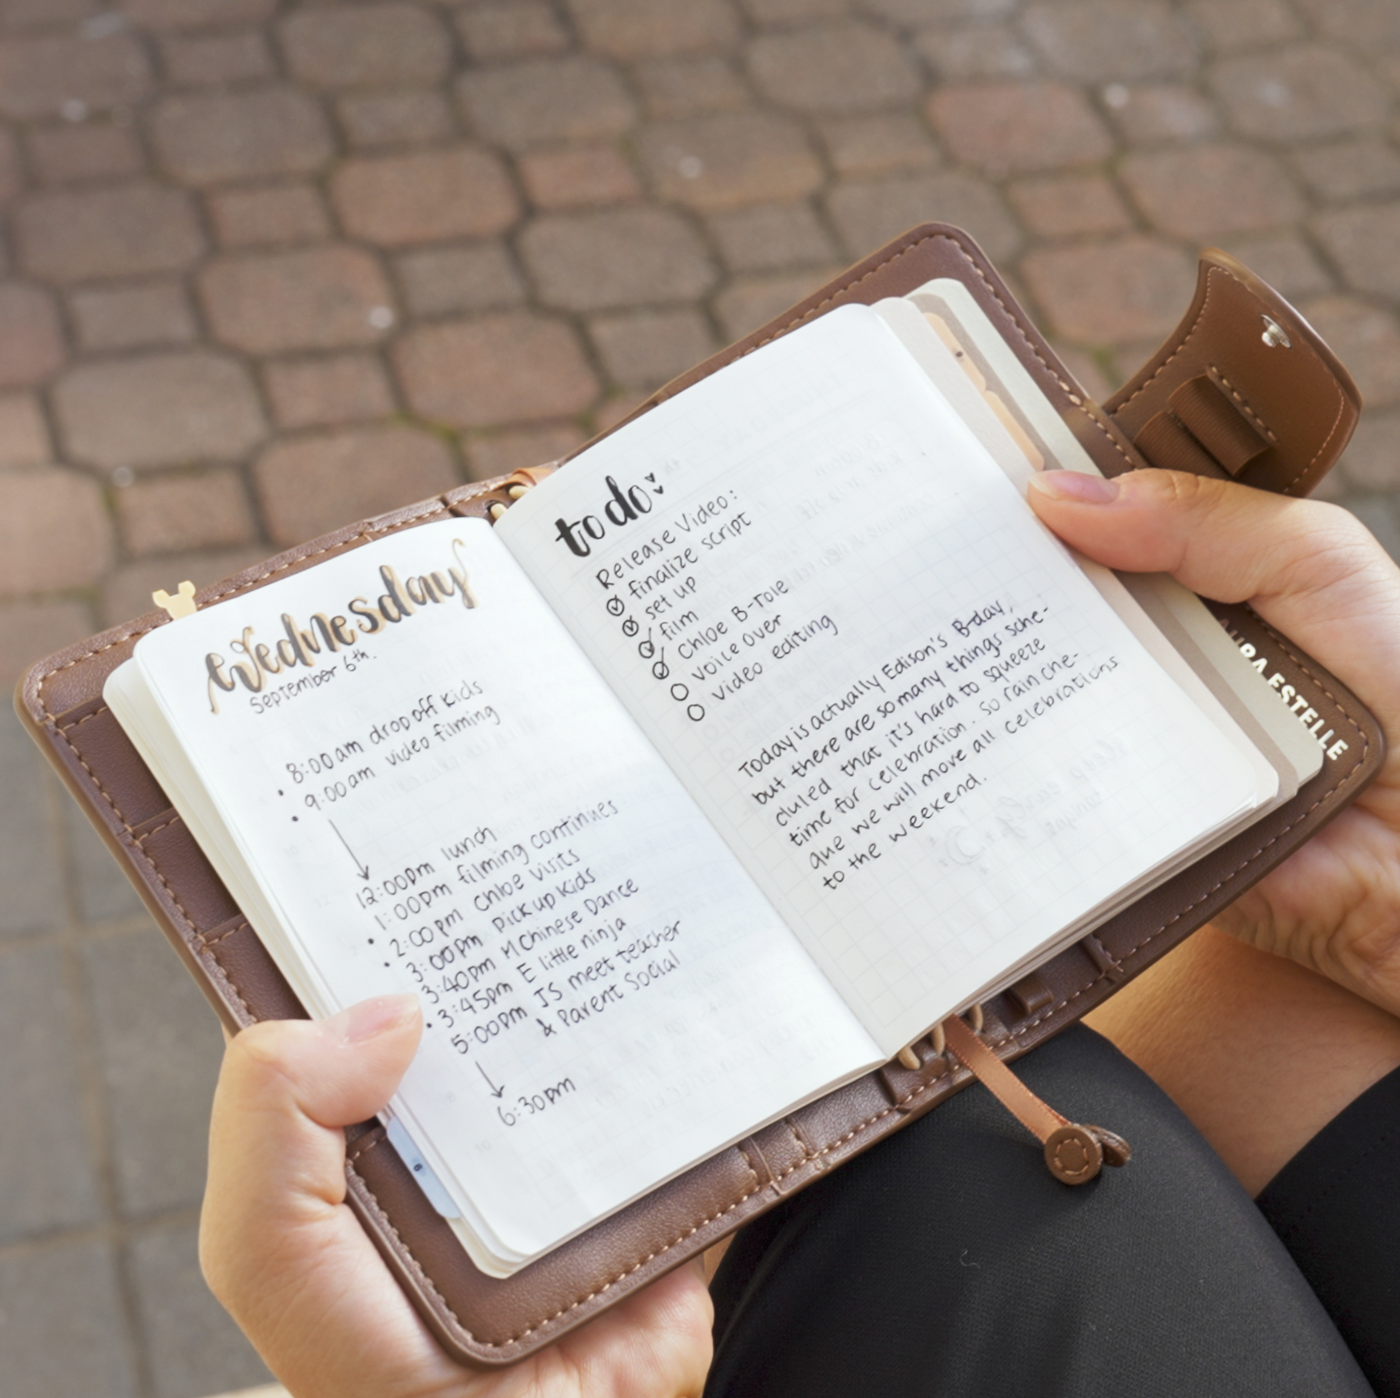 Wednesday
September 6th.
• 8:00am drop off kids
• 9:00am video filming
12:00pm lunch
1:00pm filming continues
• 2:00pm Chloe visits
• 3:00pm pick up kids
3:40pm M Chinese Dance
• 3:45pm E little ninja
5:00pm JS meet teacher
& Parent Social
6:30pm
to do
Release Video:
finalize script
set up
film
Chloe B-role
voice over
video editing
Today is actually Edison's B-day,
but there are so many things sche-
duled that it's hard to squeeze
time for celebration. So rain che-
que we will move all celebrations
to the weekend.
AURA ESTELLE